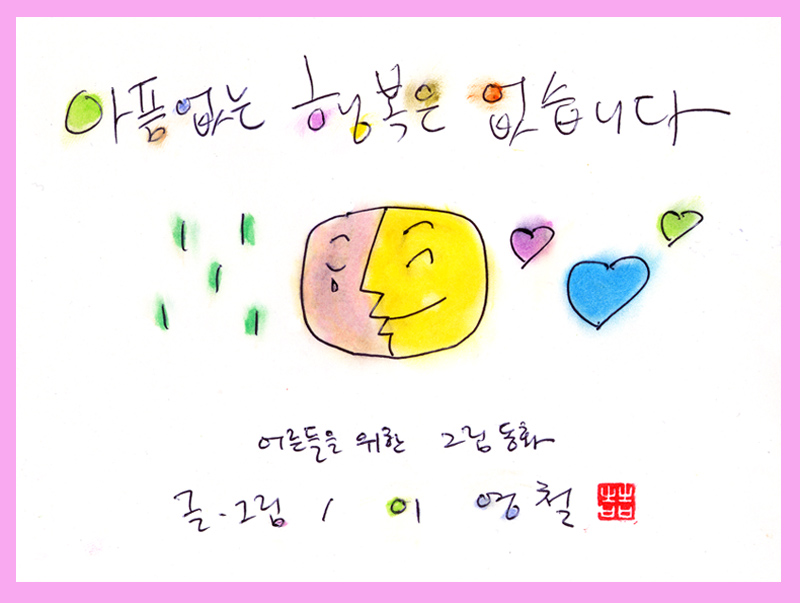 아픔없는 행복은 없습니다
어른들을 위한 그림 동화
글·그림 / 이 영철
喆